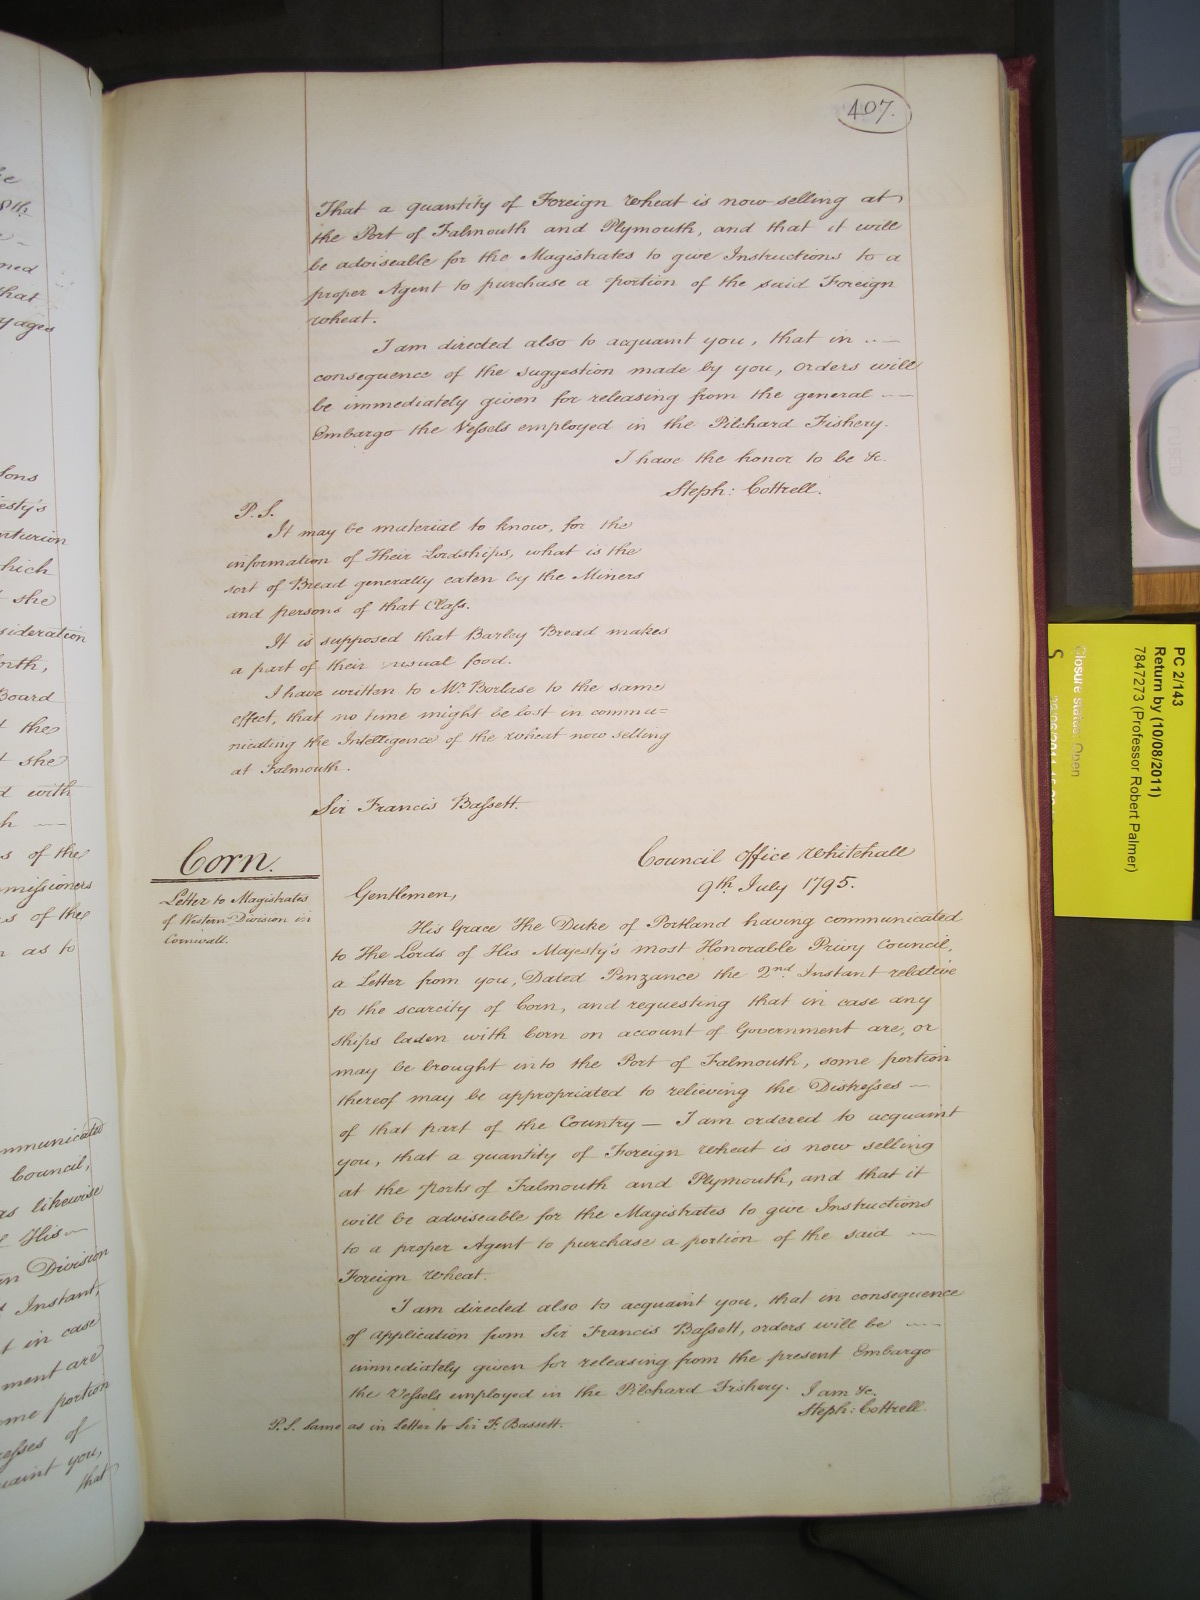 407.
That a quantity of Foreign wheat is now selling at
the Port of Falmouth and Plymouth, and that it will
be adviseable for the Magistrates to give Instructions to a
proper Agent to purchase a portion of the said Foreign
wheat.
I am directed also to acquaint you, that in
consequence of the suggestion made by you, orders will
be immediately given for releasing from the general
Embargo the Vessels employed in the Pilchard Fishery.
I have the honor to be &c.
Steph: Cottrell.
P.S.
It may be material to know, for the
information of Their Lordships, what is the
sort of Bread generally eaten by the Miners
and persons of that Class.
It is supposed that Barley Bread makes
a part of their usual food.
I have written to Mr. Borlase to the same
effect, that no time might be lost in commu=
nicating the Intelligence of the wheat now selling
at Falmouth.
Sir Francis Bassett.
Corn.
Letter to Magistrates
of Western Division in
Cornwall.
Council office Whitehall
9th. July 1795.
Gentlemen,
His Grace The Duke of Portland having communicated
to The Lords of His Majesty's most Honorable Privy Council,
a Letter from you, Dated Penzance the 2nd. Instant relative
to the scarcity of Corn, and requesting that in case any
ships laden with Corn on account of Government are, or
may be brought into the Port of Falmouth, some portion
thereof may be appropriated to relieving the Distresses —
of that part of the Country — I am ordered to acquaint
you, that a quantity of Foreign wheat is now selling
at the ports of Falmouth and Plymouth, and that it
will be adviseable for the Magistrates to give Instructions
to a proper Agent to purchase a portion of the said
Foreign wheat.
I am directed also to acquaint you, that in consequence
of application from Sir Francis Bassett, orders will be
immediately given for releasing from the present Embargo
the Vessels employed in the Pilchard Fishery. I am &c.
Steph: Cottrell.
P.S. same as in Letter to Sir F. Bassett.
PC 2/143
Return by (10/08/2011)
7847273 (Professor Robert Palmer)
Closure status: Open
S
sons
esty's
nturion
hich
she
sideration
Board
the
she
with
of the
mmissioners
s of the
as to
mmunicated
Council,
as likewise
His
Division
Instant,
in case
ment are
ome portion
resses of
uaint you,
that